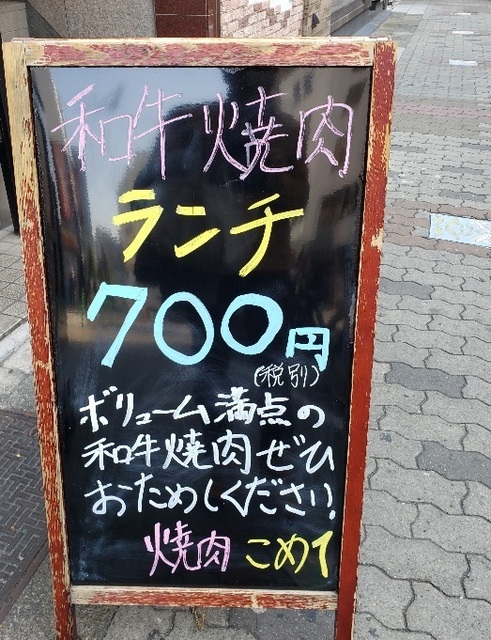 和牛焼肉
ランチ
700円
(税別)
ボリューム満点の
和牛焼肉ぜひ
おためしください!
焼肉 こめ1